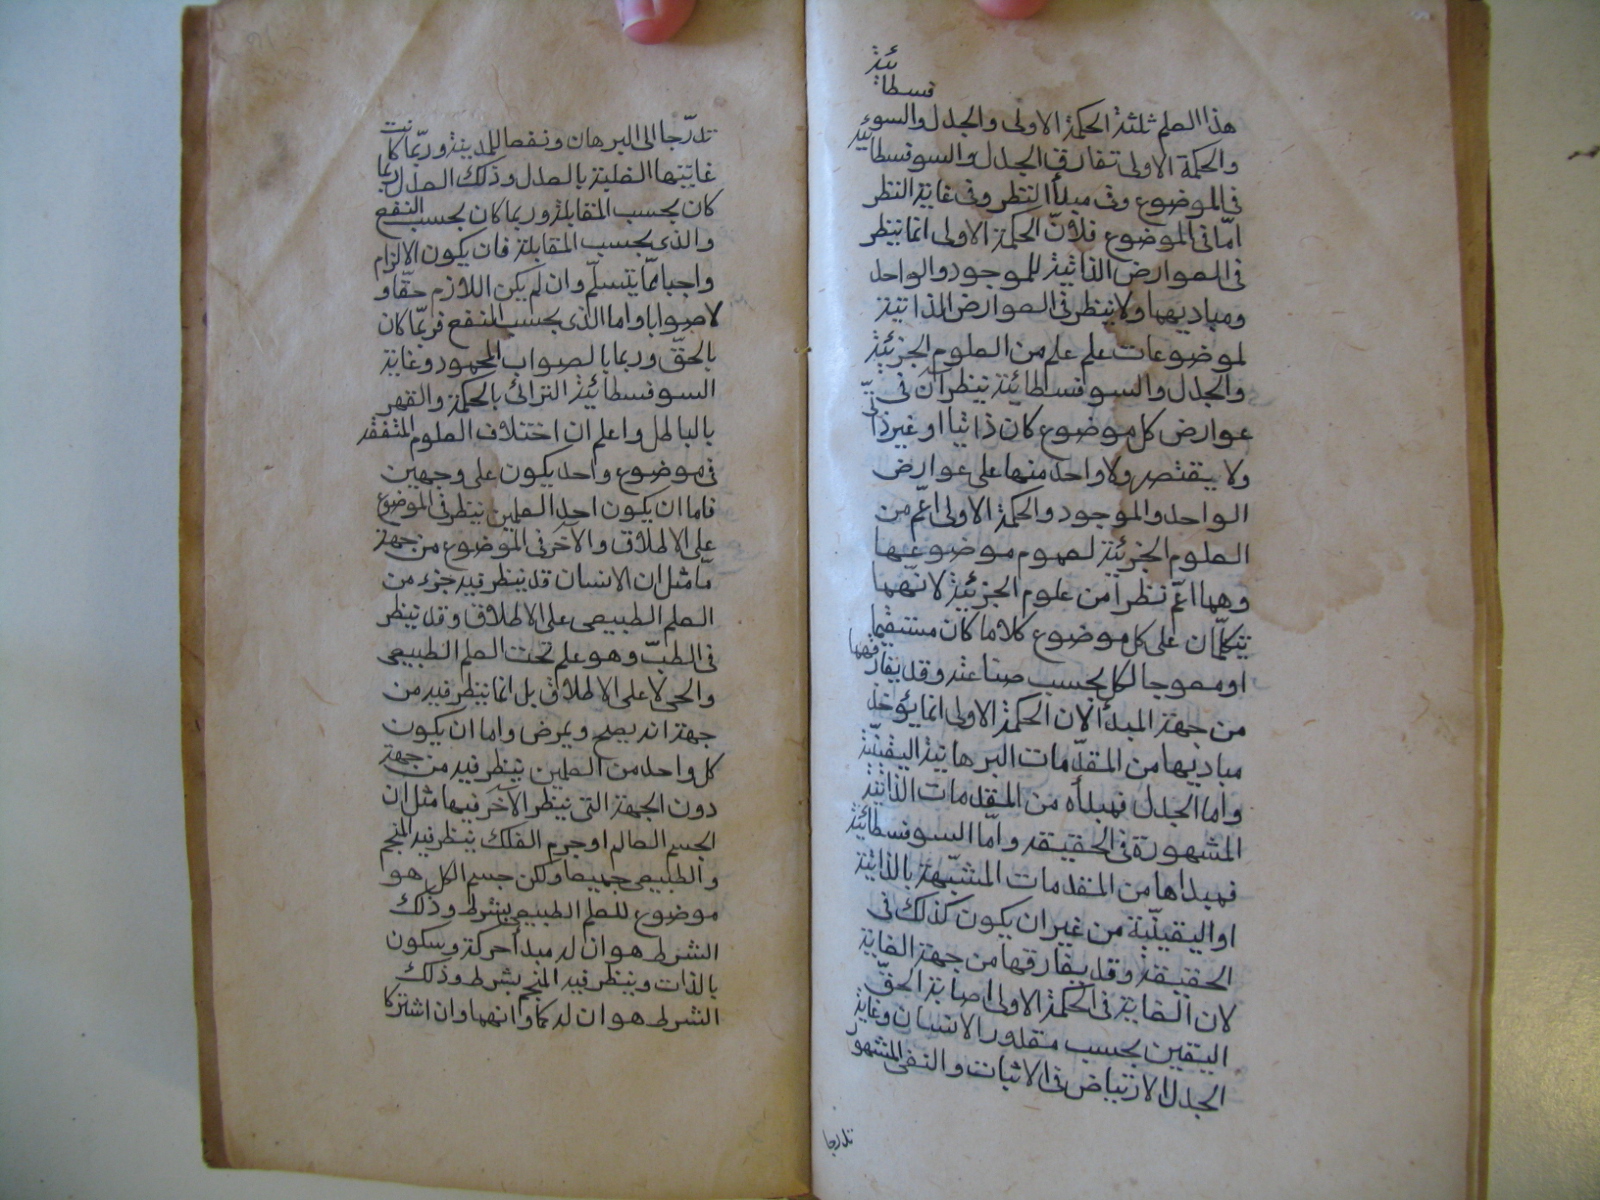 هذا العلم ثلثة الحكمة الاولى والجدل والسوفسطائية
والحكمة الاولى تفارق الجدل والسوفسطائية
فى الموضوع وفى مبدأ النظر وفى غاية النظر
امّا فى الموضوع فلانّ الحكمة الاولى انما ينظر
فى العوارض الذاتية للموجود والواحد
ومباديهما ولا ينظر فى العوارض الذاتية
لموضوعات علم علم من العلوم الجزئية
والجدل والسوفسطائية ينظران فى
عوارض كل موضوع كان ذاتيا او غير ذاتىّ
ولا يقتصر ولا واحد منها على عوارض
الواحد والموجود والحكمة الاولى اعّم من
العلوم الجزئية لعموم موضوعها
وهما اعّم نظرا من علوم الجزئية لانّهما
يتكلّمان على كل موضوع كلاما كان مستقيما
او معوجا لكل بحسب صناعته وقد يفارقهما
من جهة المبدأ لان الحكمة الاولى انما يؤخذ
مباديها من المقدّمات البرهانية اليقينيّة
واما الجدل فمبدأه من المقدمات الذاتية
المشهورة فى الحقيقه وامّا السوفسطائية
فمبداها من المقدمات المشبّهة بالذاتية
او اليقينّية من غير ان يكون كذلك فى
الحقيقة وقد يفارقها من جهة الغاية
لان الغاية فى الحكمة الاولى اصابة الحقّ
اليقين بحسب مقدور الانسان وغاية
الجدل الارتياض فى الاثبات والنفى المشهور
تدرجا
تدرّجا الى البرهان ونفعا للمدينة وربّما كانت
غايتها الغلبة بالعدل وذلك العدل ربما
كان بحسب المقابلة وربما كان بحسب النفع
والذى بحسب المقابلة فان يكون الالزام
واجبا ممّا يتسلّم وان لم يكن اللازم حقّا و
لا صوابا واما الذى بحسب المنفع فربّما كان
بالحقّ وربما بالصواب المحمود وغاية
السوفسطائية الترائى بالحكمة والقهر
بالباطل واعلم ان اختلاف العلوم المتفقة
فى موضوع واحد يكون على وجهين
فاما ان يكون احد العلمين ينظر فى الموضوع
على الاطلاق والآخر فى الموضوع من جهة
مّا مثل ان الانسان قد ينظر فيه جزء من
العلم الطبيعى على الاطلاق وقد ينظر
فى الطبّ وهو علم تحت العلم الطبيعى
والحى لا على الاطلاق بل انما ينظر فيه من
جهة انه يصح ويمرض واما ان يكون
كل واحد من العلمين ينظر فيه من جهة
دون الجهة التى ينظر الآخر فيها مثل ان
الجسم العالم او جرم الفلك ينظر فيه المنجم
والطبيعى جميعا ولكن جسم الكل هو
موضوع للعلم الطبيعى بشرط وذلك
الشرط هو ان له مبدأ حركة وسكون
بالذات وينظر فيه المنجم بشرط وذلك
الشرط هو ان له كما وانهما وان اشتركا